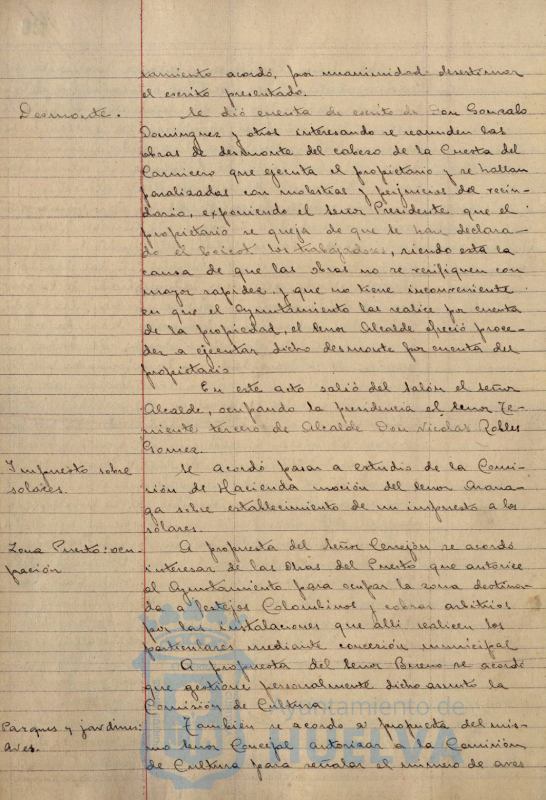 tamiento acordó, por unanimidad desestimar
el escrito presentado.
Desmonte.
Se dió cuenta de escrito de Don Gonzalo
Dominguez y otros interesando se reanuden las
obras de desmonte del cabezo de la Cuesta del
Carnicero que ejecuta el propietario y se hallan
paralizadas con molestias y perjuicios del vecin-
dario, exponiendo el Señor Presidente que el
propietario se queja de que le han declara-
do el boicot los trabajadores, siendo esta la
causa de que las obras no se verifiquen con
mayor rapidez y que no tiene inconveniente
en que el Ayuntamiento las realice por cuenta
de la propiedad, el Señor Alcalde ofreció proce-
der a ejecutar dicho desmonte por cuenta del
propietario
En este acto salió del salón el señor
Alcalde, ocupando la presidencia el Señor Te-
niente tercero de Alcalde Don Nicolas Robles
Gomez.
Impuesto sobre
solares.
Se acordó pasar a estudio de la Comi-
sión de Hacienda moción del Señor Arana-
ga sobre establecimiento de un impuesto a los
solares.
Zona Puerto: ocu-
pación
A propuesta del Señor Cerrejón se acordó
interesar de las Obras del Puerto que autorice
al Ayuntamiento para ocupar la zona destina-
da a festejos Colombinos y cobrar arbitrios
por las instalaciones que alli realicen los
particulares mediante concesión municipal
A propuesta del Señor Bueno se acordó
que gestione personalmente dicho asunto la
Comisión de Cultura
Parques y jardines:
Aves.
También se acordo a propuesta del mis-
mo Señor Concejal autorizar a la Comisión
de Cultura para señalar el número de aves
Ayuntamiento de
HUELVA